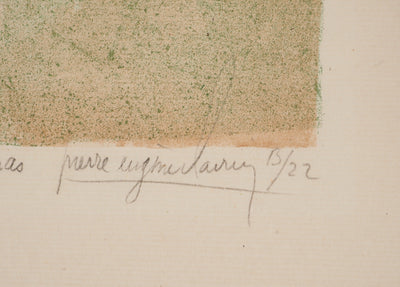 as pierre eugène Clairin 15/22